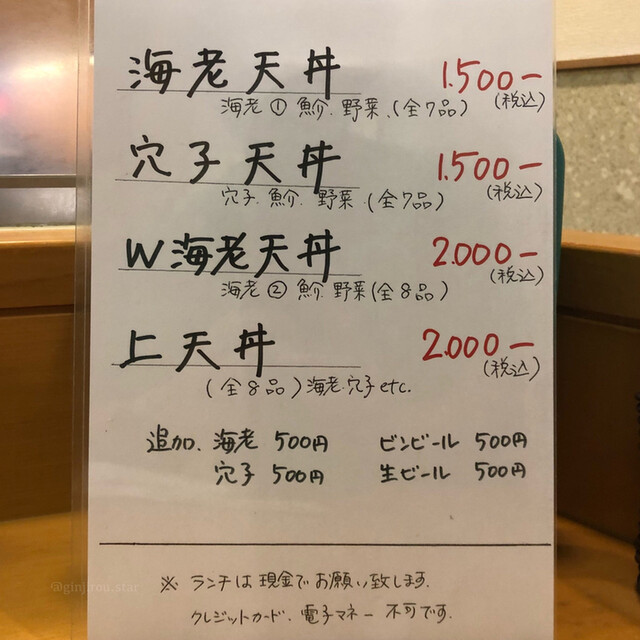 海老天丼 1.500ー
海老① 魚介.野菜.(全7品) (税込)
穴子天丼 1.500ー
穴子.魚介.野菜(全7品) (税込)
W海老天丼 2.000ー
海老② 魚介 野菜(全8品) (税込)
上天丼 2.000ー
(全8品)海老.穴子etc. (税込)
追加.海老 500円 ビンビール 500円
穴子 500円 生ビール 500円
※ ランチは現金でお願い致します.
クレジットカード.電子マネー 不可です.
@ginjirou.star